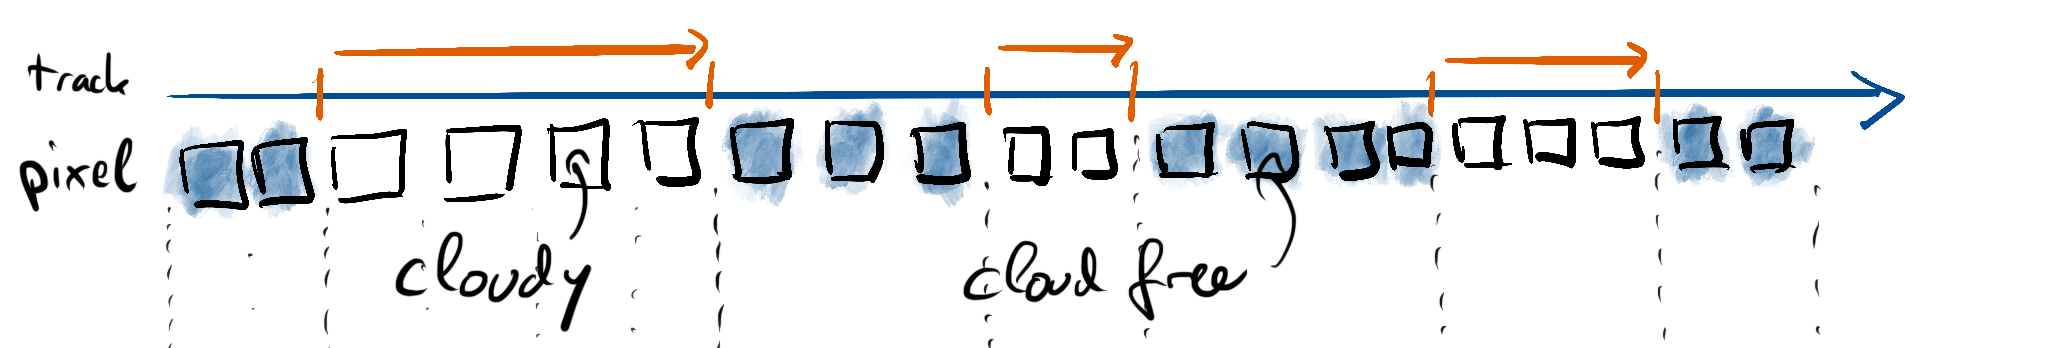 track
pixel
cloudy
cloud free